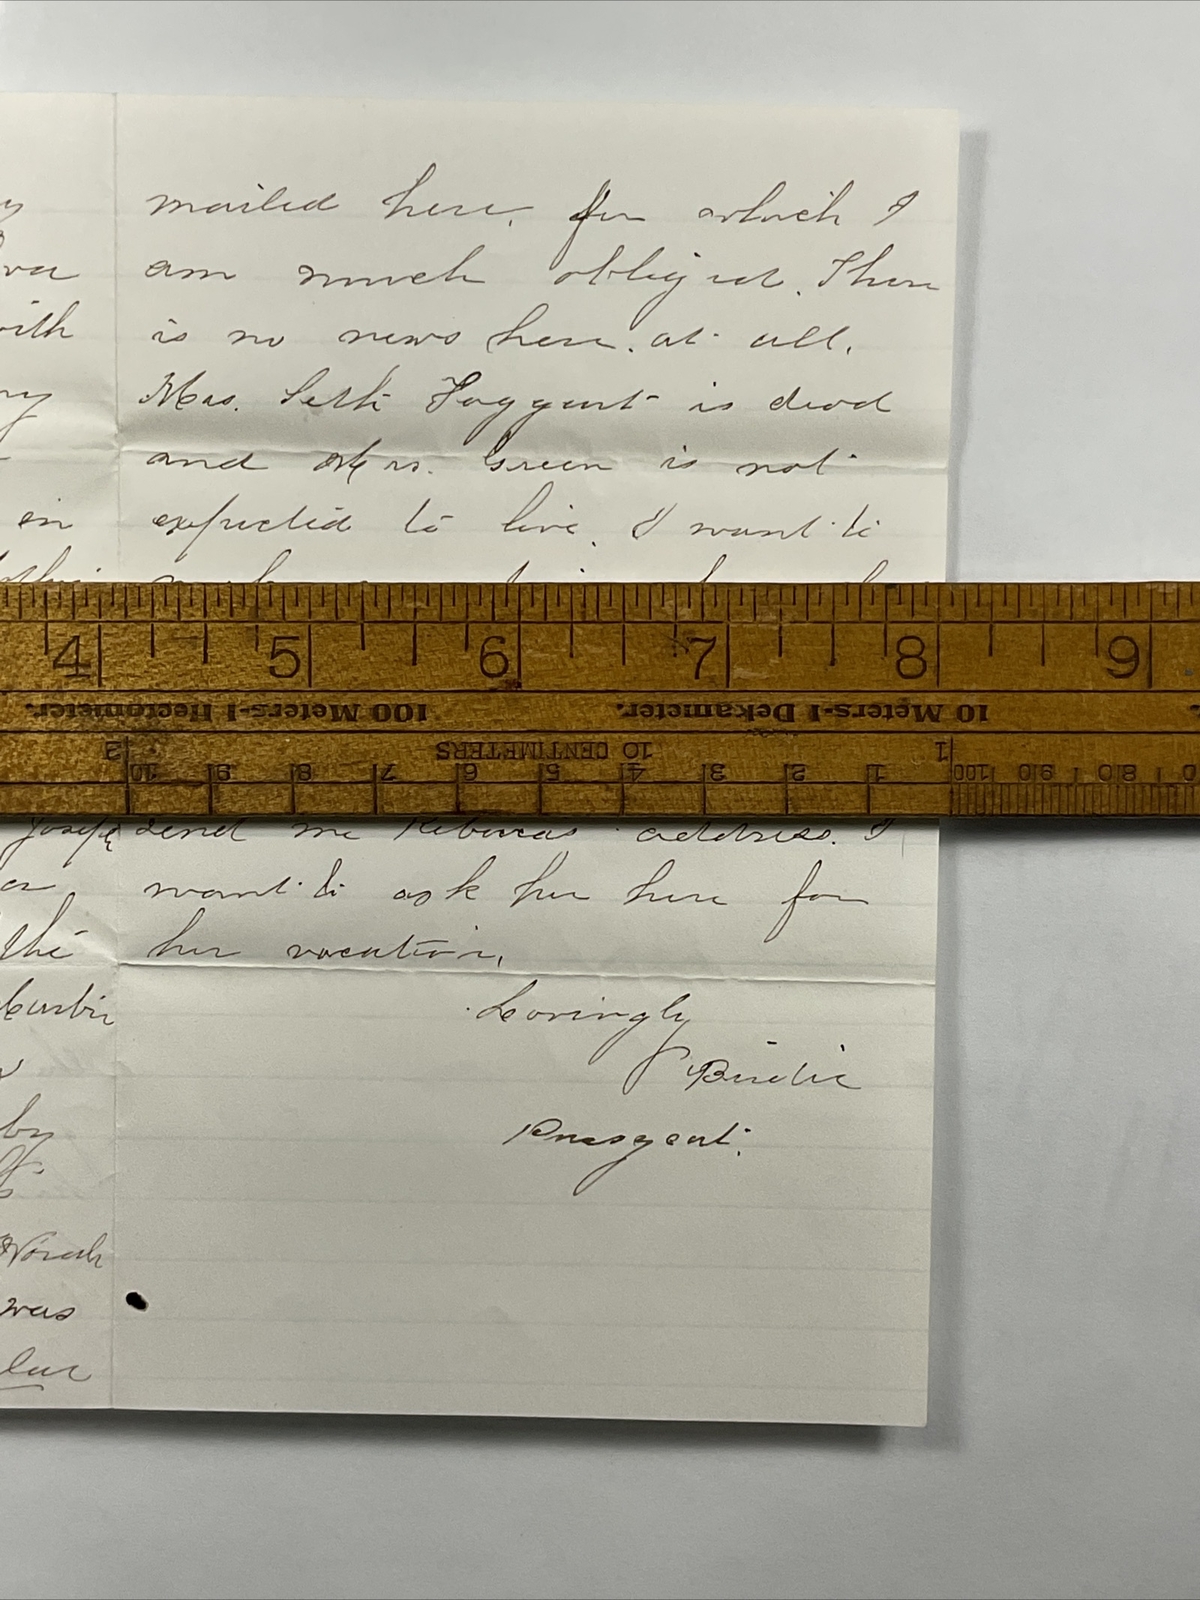 mailed here, for which I
am much obliged. There
is no news here at all.
Mrs. Seth Taggart is dead
and Mrs. Green is not
expected to live. I want to
with
in
4 5 6 7 8 9
100 Meters-1 Hectometer.
10 Meters-1 Dekameter.
2 10 CENTIMETERS 1
10 9 8 7 6 5 4 3 2 1 100 90 80
send me Rebeccas address. I
want to ask her here for
her vacation.
Lovingly
Birdie
the
by
Norah
was